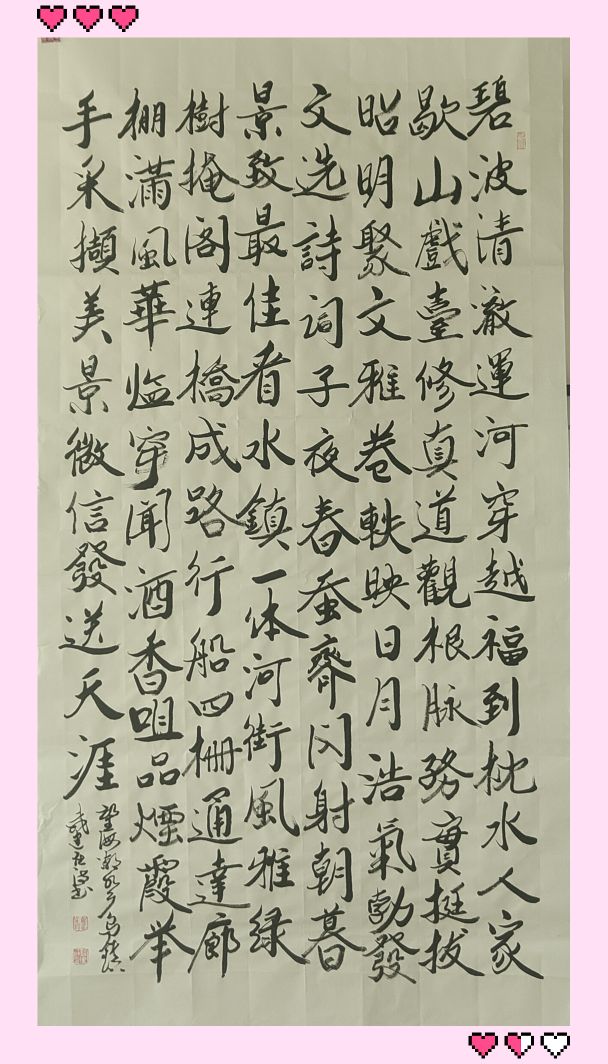 碧波清澈運河穿越福到枕水人家
歇山戲臺修真道觀根脉務實挺拔
昭明聚文雅卷軼映日月浩氣勃發
文选詩词子夜春蚕齊闪射朝暮
景致最佳看水鎮一体河街風雅绿
樹掩阁連橋成路行船四栅通達廊
棚滿風華临穿闻酒香咀品煙霞举
手采擷美景微信發送天涯